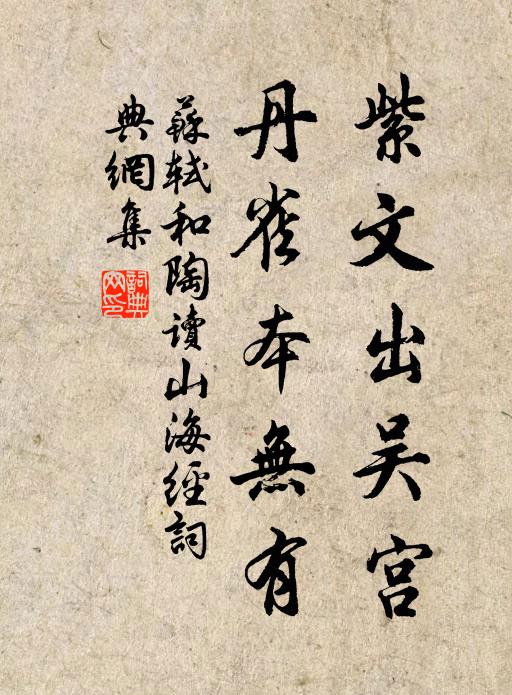 紫文出吴宫
丹雀本無有
蘇軾和陶讀山海經詞
典網集
詞典网印